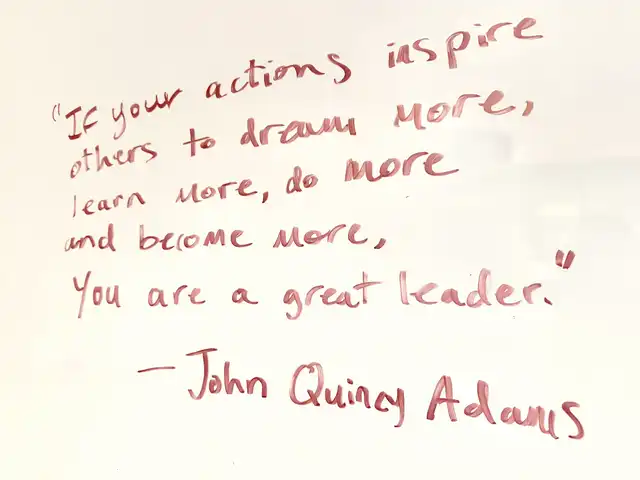 "If your actions inspire
others to dream more,
learn more, do more
and become more,
You are a great leader."
— John Quincy Adams